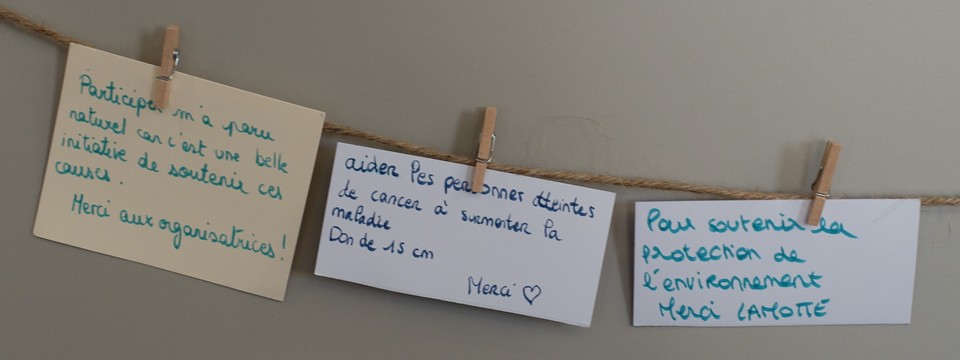 Participer m'a paru
naturel car c'est une belle
initiative de soutenir ces
causes.
Merci aux organisatrices !
aider les personner atteintes
de cancer à surmonter la
maladie
Don de 15 cm
Merci ♡
Pour soutenir la
protection de
l'environnement
Merci LAMOTTE